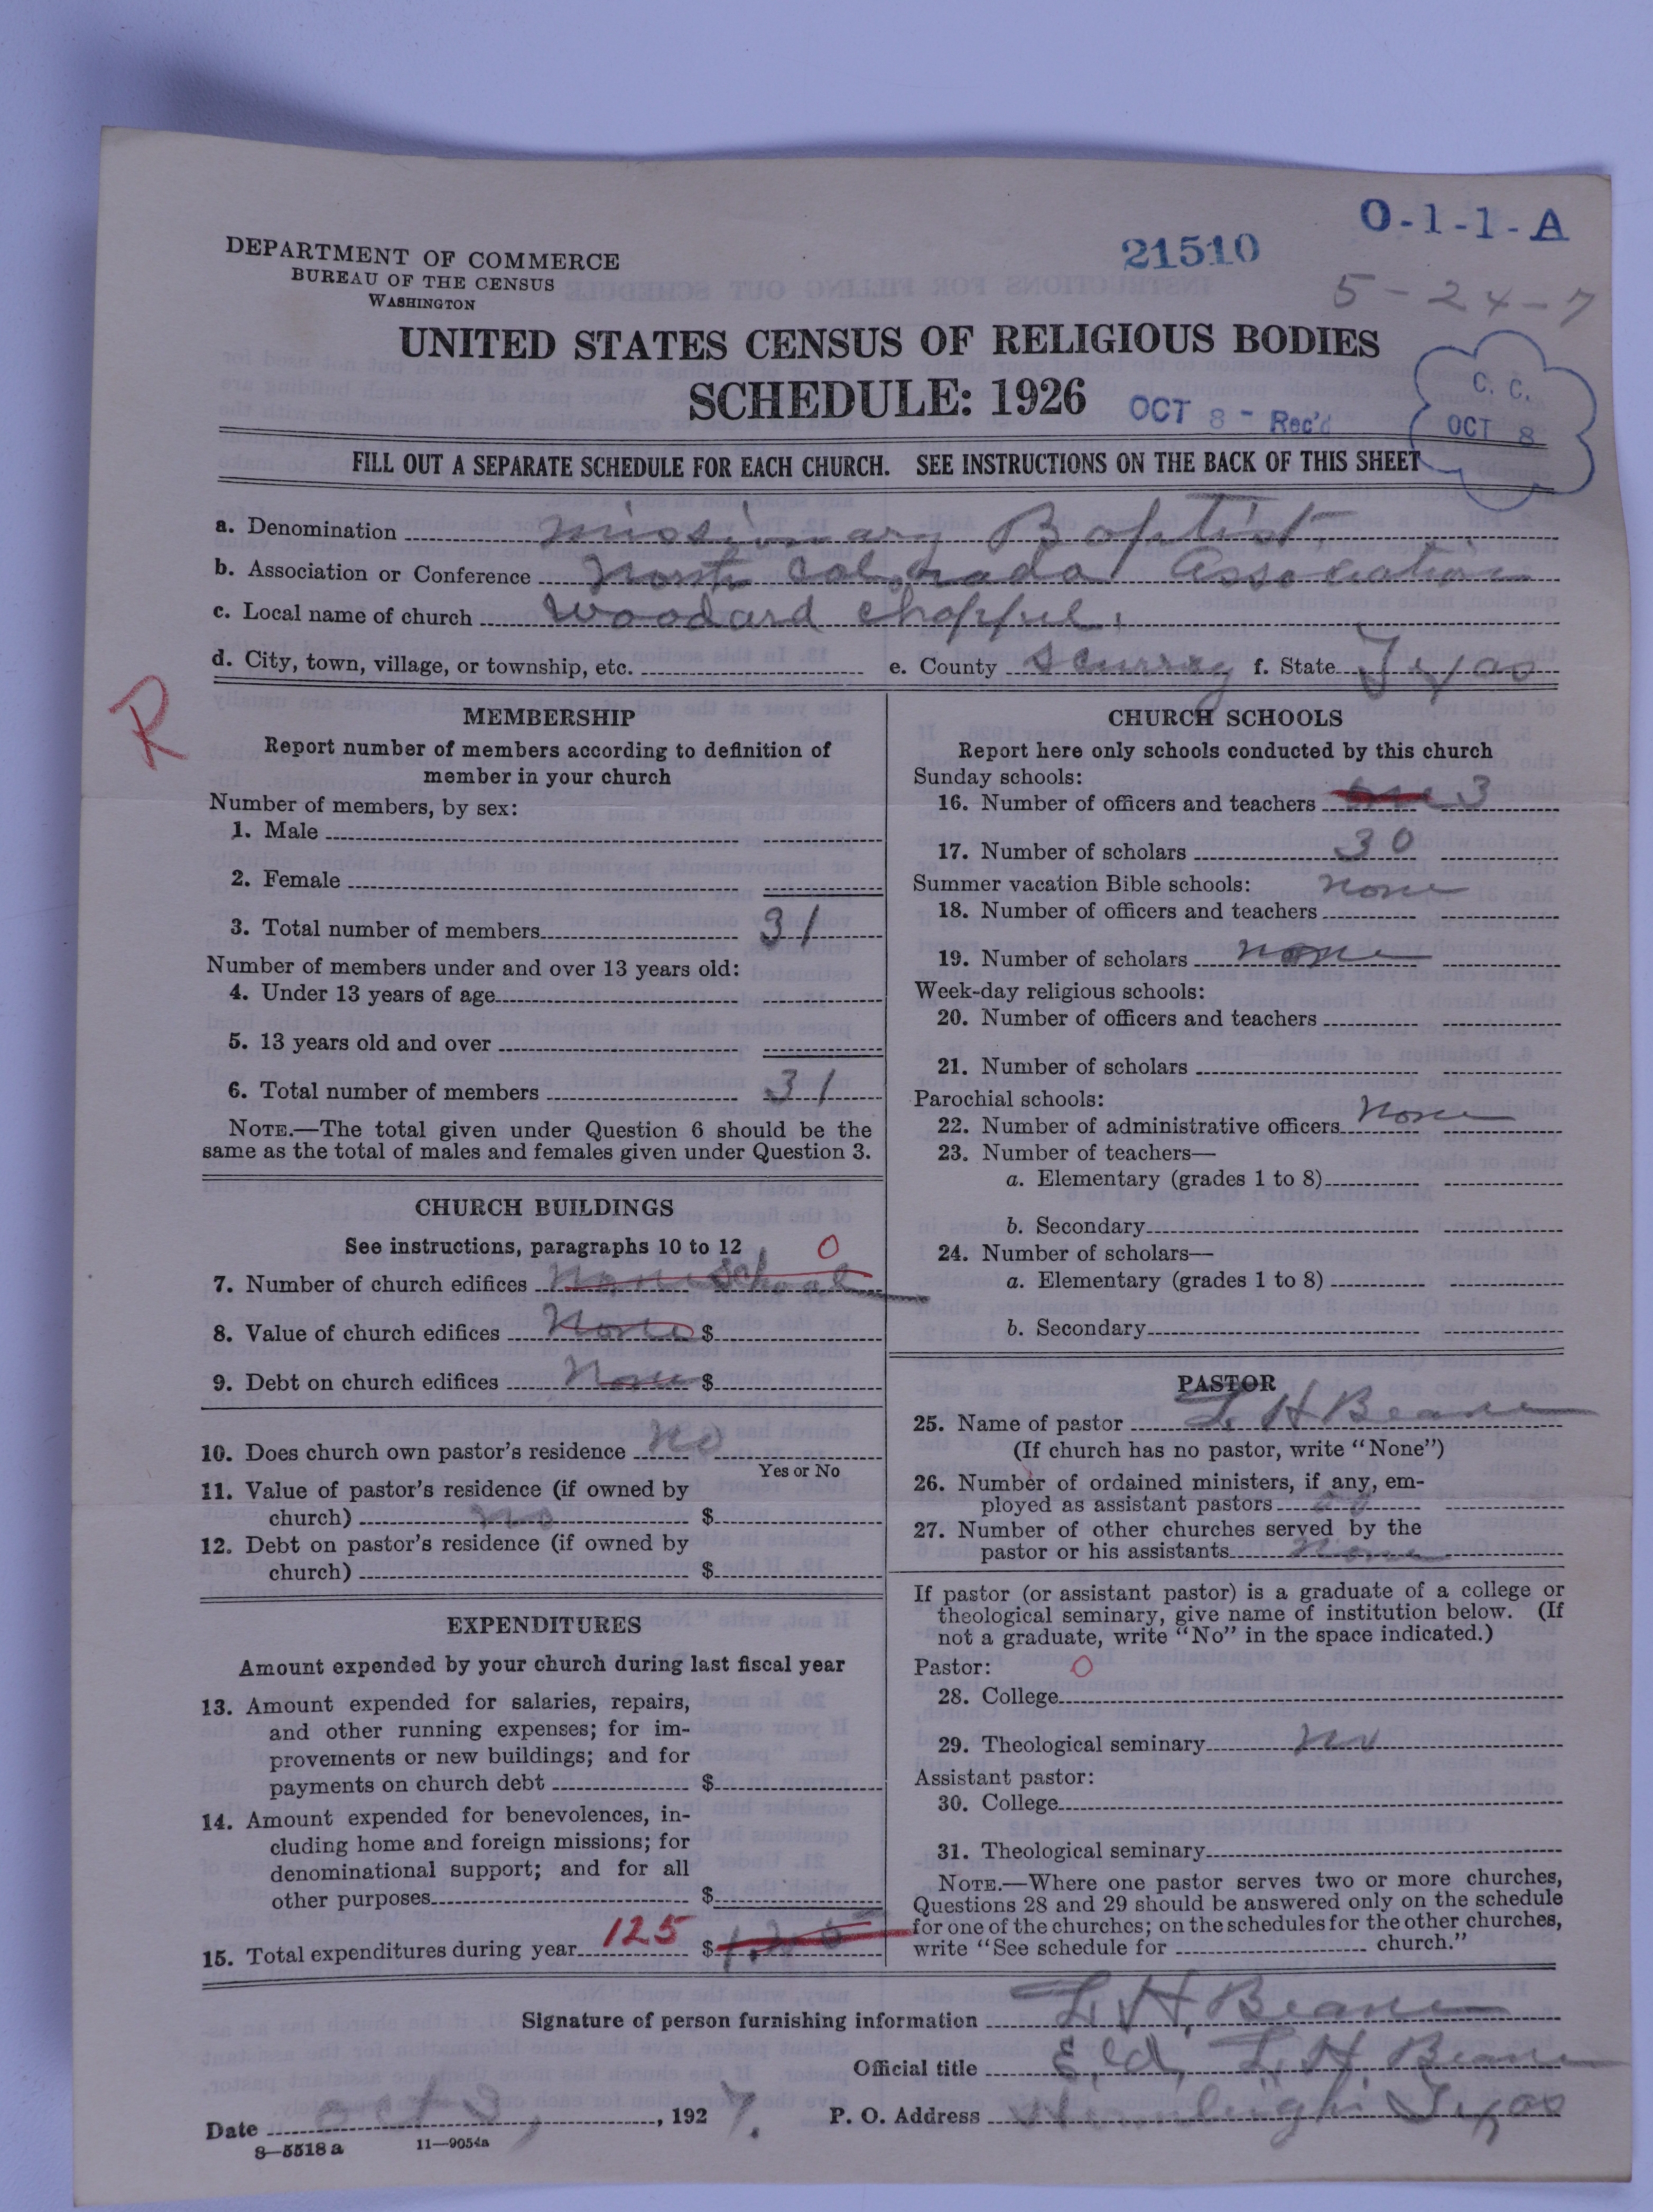 O-1-1-A
21510
5-24-7
DEPARTMENT OF COMMERCE
BUREAU OF THE CENSUS
WASHINGTON
UNITED STATES CENSUS OF RELIGIOUS BODIES
SCHEDULE: 1926
OCT 8 - Rec'd
C. C.
OCT 8
FILL OUT A SEPARATE SCHEDULE FOR EACH CHURCH. SEE INSTRUCTIONS ON THE BACK OF THIS SHEET
a. Denomination missionary Baptist
b. Association or Conference North Colorado Association
c. Local name of church Woodard Chappel.
d. City, town, village, or township, etc. e. County Scurry f. State Texas
R
MEMBERSHIP
Report number of members according to definition of
member in your church
Number of members, by sex:
1. Male
2. Female
3. Total number of members 31
Number of members under and over 13 years old:
4. Under 13 years of age
5. 13 years old and over
6. Total number of members 31
NOTE.—The total given under Question 6 should be the
same as the total of males and females given under Question 3.
CHURCH BUILDINGS
See instructions, paragraphs 10 to 12
0
7. Number of church edifices none School
8. Value of church edifices None $
9. Debt on church edifices None $
10. Does church own pastor's residence no
Yes or No
11. Value of pastor's residence (if owned by
church) no $
12. Debt on pastor's residence (if owned by
church) $
EXPENDITURES
Amount expended by your church during last fiscal year
13. Amount expended for salaries, repairs,
and other running expenses; for im-
provements or new buildings; and for
payments on church debt $
14. Amount expended for benevolences, in-
cluding home and foreign missions; for
denominational support; and for all
other purposes $
15. Total expenditures during year 125 $
CHURCH SCHOOLS
Report here only schools conducted by this church
Sunday schools:
16. Number of officers and teachers 3
17. Number of scholars 30
Summer vacation Bible schools: none
18. Number of officers and teachers
19. Number of scholars none
Week-day religious schools:
20. Number of officers and teachers
21. Number of scholars
Parochial schools:
22. Number of administrative officers none
23. Number of teachers—
a. Elementary (grades 1 to 8)
b. Secondary
24. Number of scholars—
a. Elementary (grades 1 to 8)
b. Secondary
PASTOR
25. Name of pastor L. H Beane
(If church has no pastor, write "None")
26. Number of ordained ministers, if any, em-
ployed as assistant pastors no
27. Number of other churches served by the
pastor or his assistants none
If pastor (or assistant pastor) is a graduate of a college or
theological seminary, give name of institution below. (If
not a graduate, write "No" in the space indicated.)
Pastor: 0
28. College
29. Theological seminary no
Assistant pastor:
30. College
31. Theological seminary
NOTE.—Where one pastor serves two or more churches,
Questions 28 and 29 should be answered only on the schedule
for one of the churches; on the schedules for the other churches,
write "See schedule for church."
Signature of person furnishing information L. H. Beane
Official title Eld, L. H. Beane
Date oct 3, 1927. P. O. Address Hermleigh Texas
8—5518 a 11—9054a